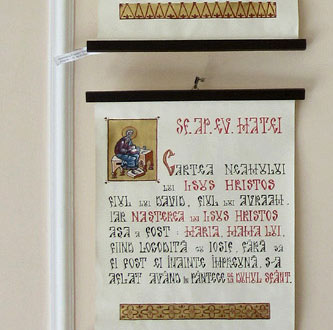 SF. AP. EV. MATEI
CARTEA NEAMULUI
LUI ISUS HRISTOS
FIUL LUI DAVID, FIUL LUI AVRAAM.
IAR NASTEREA LUI ISUS HRISTOS
AŞA A FOST: MARIA, MAMA LUI,
FIIND LOGODITĂ CU IOSIF, FĂRĂ SĂ
FI FOST EI ÎNAINTE ÎMPREUNĂ, S-A
AFLAT AVÂND ÎN PÂNTECE DE LA DUHUL SFÂNT.